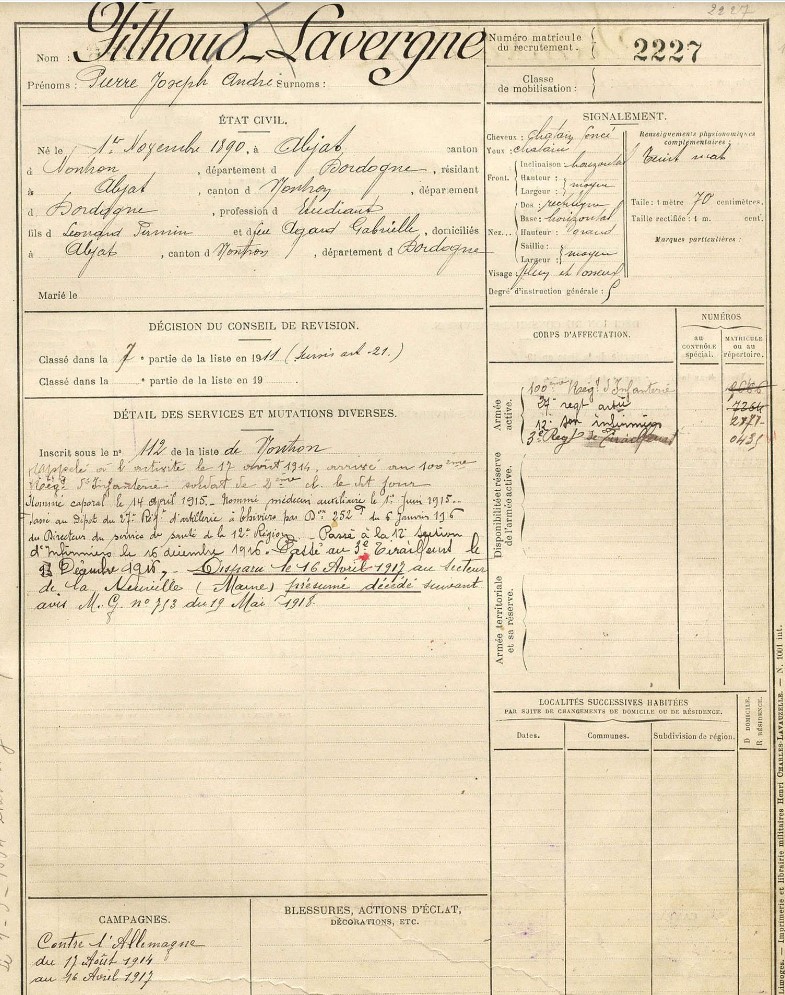 2227
Nom : Filhoud-Lavergne
Prénoms : Pierre Joseph André Surnoms :
Numéro matricule du recrutement. 2227
Classe de mobilisation :
ÉTAT CIVIL.
Né le 1er Novembre 1890, à Abjat, canton
d Nontron, département d Dordogne, résidant
à Abjat, canton d Nontron, département
d Dordogne, profession d Etudiant
fils d Léonard Firmin et d feu Agard Gabrielle, domiciliés
à Abjat, canton d Nontron, département d Dordogne
Marié le
SIGNALEMENT.
Cheveux : chatain foncé
Yeux : chatain
Front. Inclinaison : horizontal
Hauteur :
Largeur : moyen
Nez... Dos : rectiligne
Base : horizontal
Hauteur : grand
Saillie :
Largeur : moyen
Visage : plein et osseux
Degré d'instruction générale : 5
Renseignements physionomiques complémentaires :
Teint mat
Taille : 1 mètre 70 centimètres.
Taille rectifiée : 1 m. cent.
Marques particulières :
DÉCISION DU CONSEIL DE REVISION.
Classé dans la 7e partie de la liste en 1911 (sursis art. 21.)
Classé dans la e partie de la liste en 19
DÉTAIL DES SERVICES ET MUTATIONS DIVERSES.
Inscrit sous le no 112 de la liste de Nontron
Rappelé à l'activité le 17 août 1914, arrivé au 100ème
Régt d'Infanterie soldat de 2ème cl. le dit jour
Nommé caporal le 14 april 1915. Nommé médecin auxiliaire le 1er juin 1915.
Passé au Dépôt du 27e Régt d'artillerie à Thiviers par Don 252 du 6 janvier 1916
du Directeur du service de santé de la 12e Région. Passé à la 12e section
d'infirmiers le 16 décembre 1916. Passé au 3e Tirailleurs le
Décembre 1916, Disparu le 16 Avril 1917 au secteur
de la Neuville (Marne) présumé décédé suivant
avis M. G. no 753 du 19 Mai 1918.
CORPS D'AFFECTATION.
NUMÉROS
AU CONTRÔLE spécial.
MATRICULE OU AU répertoire.
Armée active.
100ème Régt d'Infanterie
27e regt artie 7264
12e son infirmiers 2777
3e Regt de Tirailleurs
Disponibilité et réserve de l'armée active.
Armée territoriale et sa réserve.
LOCALITÉS SUCCESSIVES HABITÉES
PAR SUITE DE CHANGEMENTS DE DOMICILE OU DE RÉSIDENCE.
Dates.
Communes.
Subdivision de région.
D DOMICILE.
R RÉSIDENCE.
CAMPAGNES.
Contre l'Allemagne
du 17 Août 1914
au 16 Avril 1917
BLESSURES, ACTIONS D'ÉCLAT,
DÉCORATIONS, ETC.
Limoges. — Imprimerie et librairie militaires Henri CHARLES-LAVAUZELLE. — N. 1001 int.